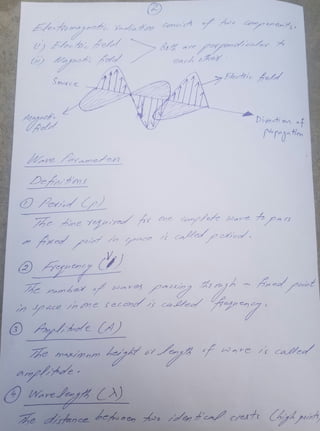 2
Electromagnetic radiation consists of two components.
i) Electric field
ii) Magnetic field
Both are perpendicular to
each other
Source
Electric field
Magnetic
field
Direction of
propagation
Wave Parameters
Definitions
① Period (p)
The time required for one complete wave to pass
a fixed point in space is called period.
② Frequency (ν)
The number of waves passing through a fixed point
in space in one second is called frequency.
③ Amplitude (A)
The maximum height or length of wave is called
amplitude.
④ Wavelength (λ)
The distance between two identical crests (high points)